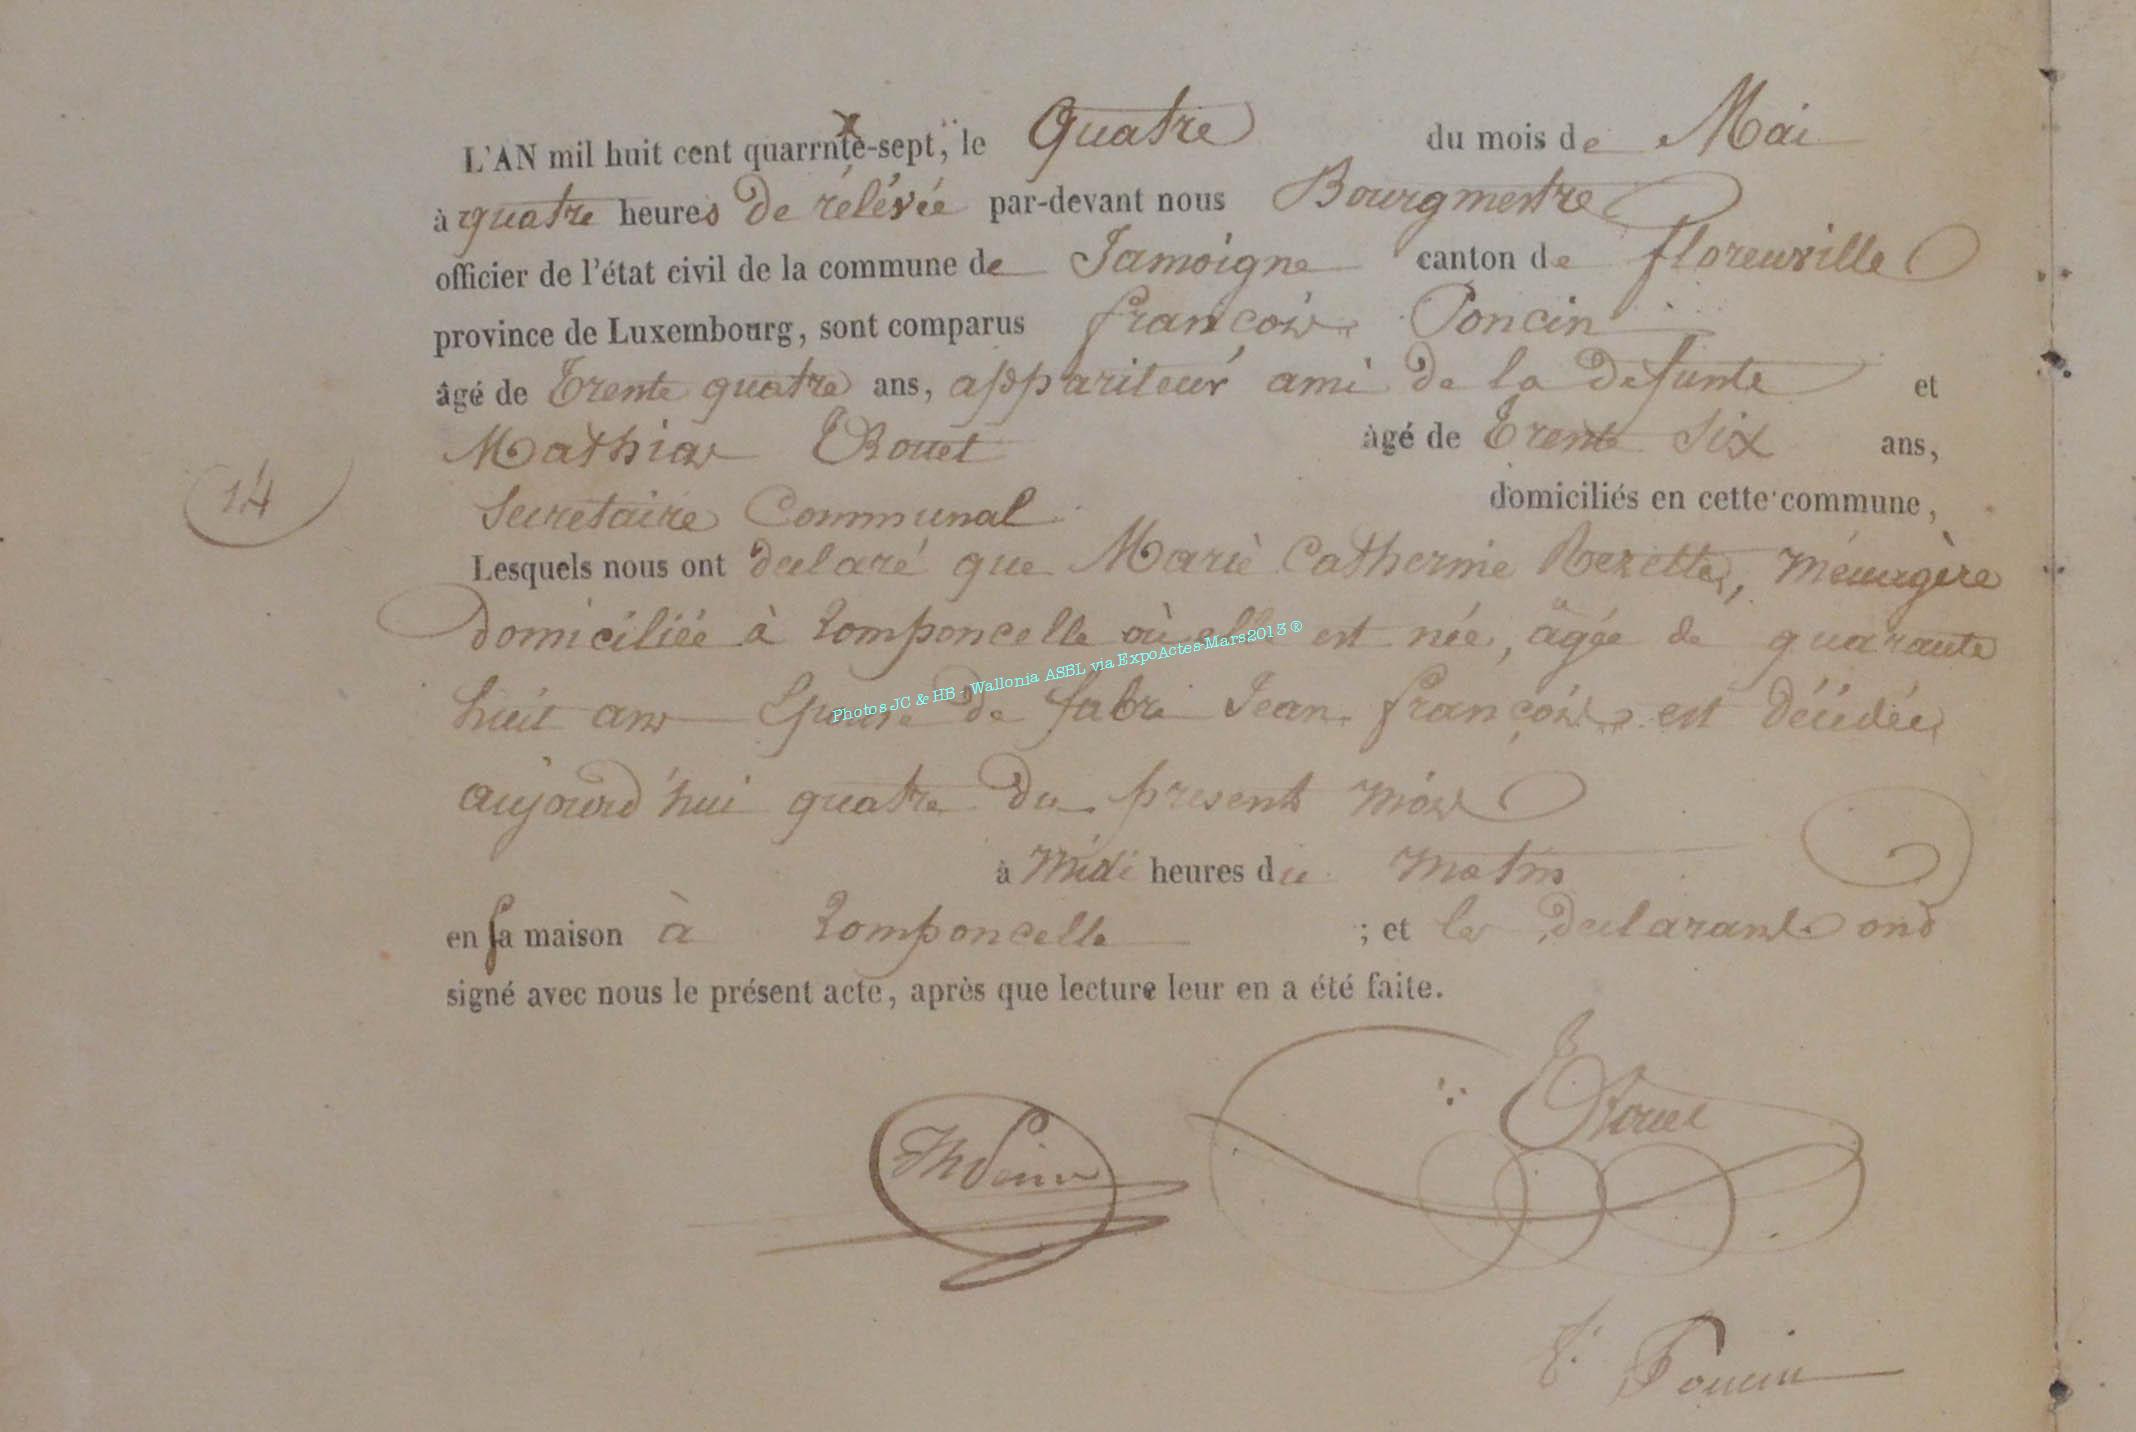 L'AN mil huit cent quarrnte-sept, le Quatre du mois de Mai
à quatre heures de rélévée par-devant nous Bourgmestre
officier de l'état civil de la commune de Jamoigne canton de florenville
province de Luxembourg, sont comparus françois Poncin
âgé de Trente quatre ans, appariteur ami de la defunte et
Mathias Rouet âgé de Trente Six ans,
14
Secretaire Communal domiciliés en cette commune,
Lesquels nous ont declaré que Marie Catherine Rezette, ménagère
domiciliée à Romponcelle où elle est née, âgée de quarante
huit ans Epouse de fabri Jean françois est décédée
Photos JC & HB - Wallonia ASBL via ExpoActes-Mars2013 ®
aujourd'hui quatre du present mois
à Midi heures du matin
en sa maison à Romponcelle ; et les declarants ont
signé avec nous le présent acte, après que lecture leur en a été faite.
Rouet
f. Poncin